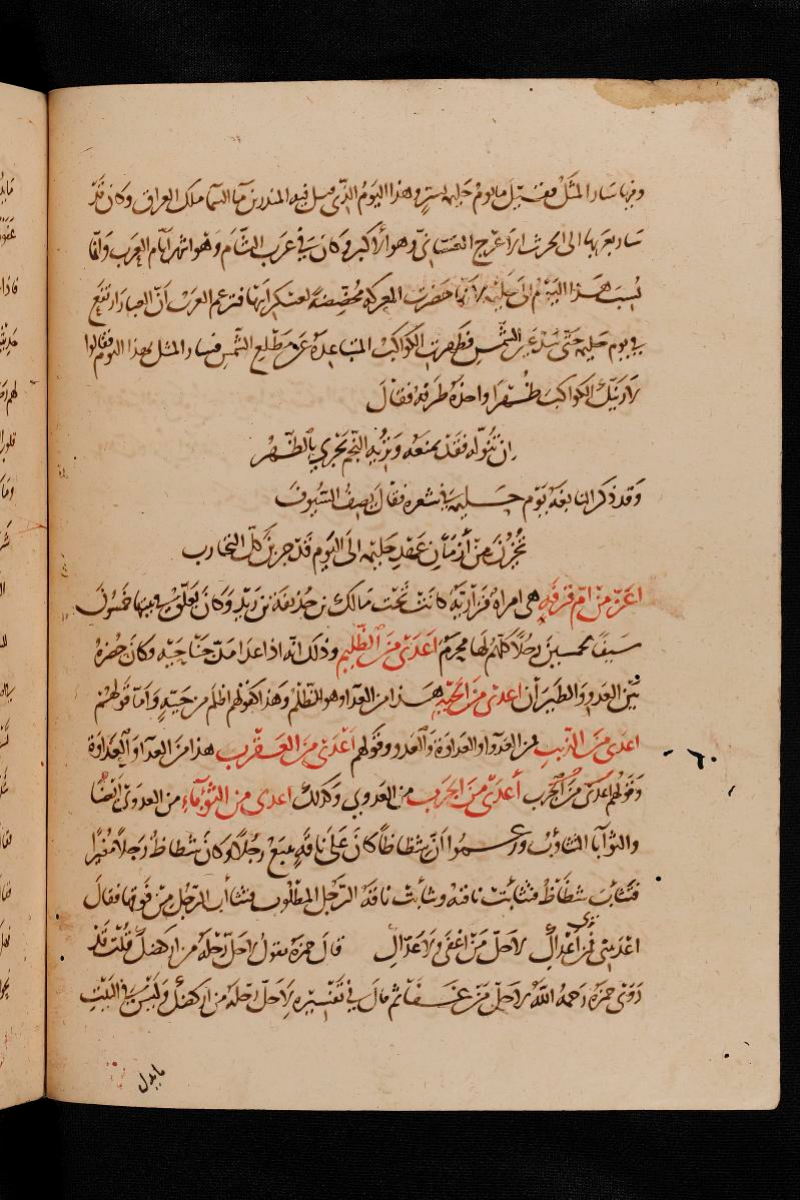 وفيها سار المثل فقيل ما يوم حليمة بسر وهذا اليوم الذي قتل فيه المنذر بن ما السما ملك العراق وكان قد
سار بعربها الى الحرث الاعرج الغسانى وهو الاكبر وكان في عرب الشام وهو اشهر ايام العرب وانما
نسب هذا اليوم الى حليمة لانها حضرت المعركة محضضة لعسكر ابيها فتزعم العرب ان الغبار ارتفع
في يوم حليمة حتى سد عين الشمس فظهرت الكواكب المتباعدة عن مطلع الشمس فسار المثل بهذا اليوم فقالوا
لاُرينّك الكواكب ظهرا واخذه طرفه فقال
ان تنوله فقد تمنعه وتريه النجم يجري بالظهر
وقد ذكر النابغة يوم حليمة في شعره فقال يصف السيوف
تخيرن من ازمان عهد حليمة الى اليوم قد جربن كل التجارب
اعز من ام قرفة هي امراة فزارية كانت تحت مالك بن حذيفة بن بدر وكان يعلق في بيتها خمسون
سيفا لخمسين رجلا كلهم لها محرم اعدى من الظليم وذلك انه اذا عدا مد جناحيه وكان حضره
بين العدو والطيران اعدى من الحية هذا من العدا وهو الظلم وهذا كقولهم اظلم من حية واما قولهم
اعدى من الذيب فمن العدو او العداوة والعدو وقولهم اعدى من العقرب هذا من العدا والعداوة
وقولهم اعدى من الجرب اعدى من الجرب من العدوي وكذلك اعدى من الثؤباء من العدوى ايضا
والثوبا التثاؤب وزعموا ان شظاظا كان على ناقة يتبع رجلا وكان شظاظ رجلا مغيرا
فتثاءب شظاظ فتثابت ناقته وتثابت ناقة الرجل المطلوب فتثاءب الرجل من فوقها فقال
اعديتنى فمن ترى اعدالِ لاحل من اغفى ولا عدالِ قال حمزة يقول لا حل رحله من ارهصل قلت قد
روى حمزة رحمه الله لا حل من غفا ثم قال في تفسيره لا حل رحله من ارهصل وليس في البيت
ما يدل